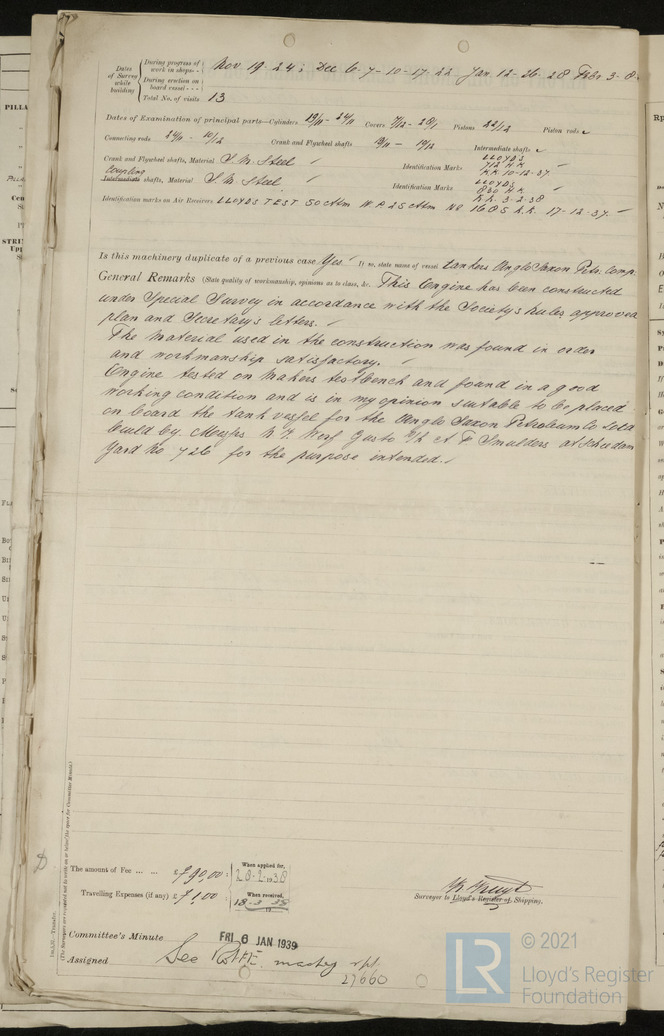 Dates of Survey while building
During progress of work in shops - - Nov 19. 24; Dec 6-7-10-17-22 Jan. 12-26-28 Febr 3-8.
During erection on board vessel - - -
Total No. of visits 13
Dates of Examination of principal parts—Cylinders 19/11 - 24/11 Covers 7/12 - 28/1 Pistons 22/12 Piston rods
Connecting rods 24/11 - 10/12 Crank and Flywheel shafts 19/11 - 17/12 Intermediate shafts
Crank and Flywheel shafts, Material S.M. Steel Identification Marks LLOYDS 712 H.K. K.K. 10-12-37
Coupling
Intermediate shafts, Material S.M. Steel Identification Marks LLOYDS 830 H.K. K.K. 3-2-38
Identification marks on Air Receivers LLOYDS TEST 50 Atm W.P. 25 Atm No 1605 K.K. 17-12-37.
Is this machinery duplicate of a previous case Yes If so, state name of vessel tankers Anglo Saxon Petr. Comp.
General Remarks (State quality of workmanship, opinions as to class, &c. This Engine has been constructed
under Special Survey in accordance with the Society's Rules approved
plan and Secretary's letters.
The material used in the construction was found in order
and workmanship satisfactory.
Engine tested on Makers testbench and found in a good
working condition and is in my opinion suitable to be placed
on board the tank vessel for the Anglo Saxon Petroleum Co
build by Messrs N.V. Werf Gusto A F Smulders at Schiedam
Yard No 726 for the purpose intended.
The amount of Fee ... ... £ 90.00 : When applied for, 28.2.1938
Travelling Expenses (if any) £ 1.00 : When received, 18-3 38
Surveyor to Lloyd's Register of Shipping.
Committee's Minute FRI. 6 JAN 1939
Assigned See machy rpt.
27660
(The Surveyors are requested not to write on or below the space for Committee Minute.)
© 2021
LR
Lloyd's Register
Foundation